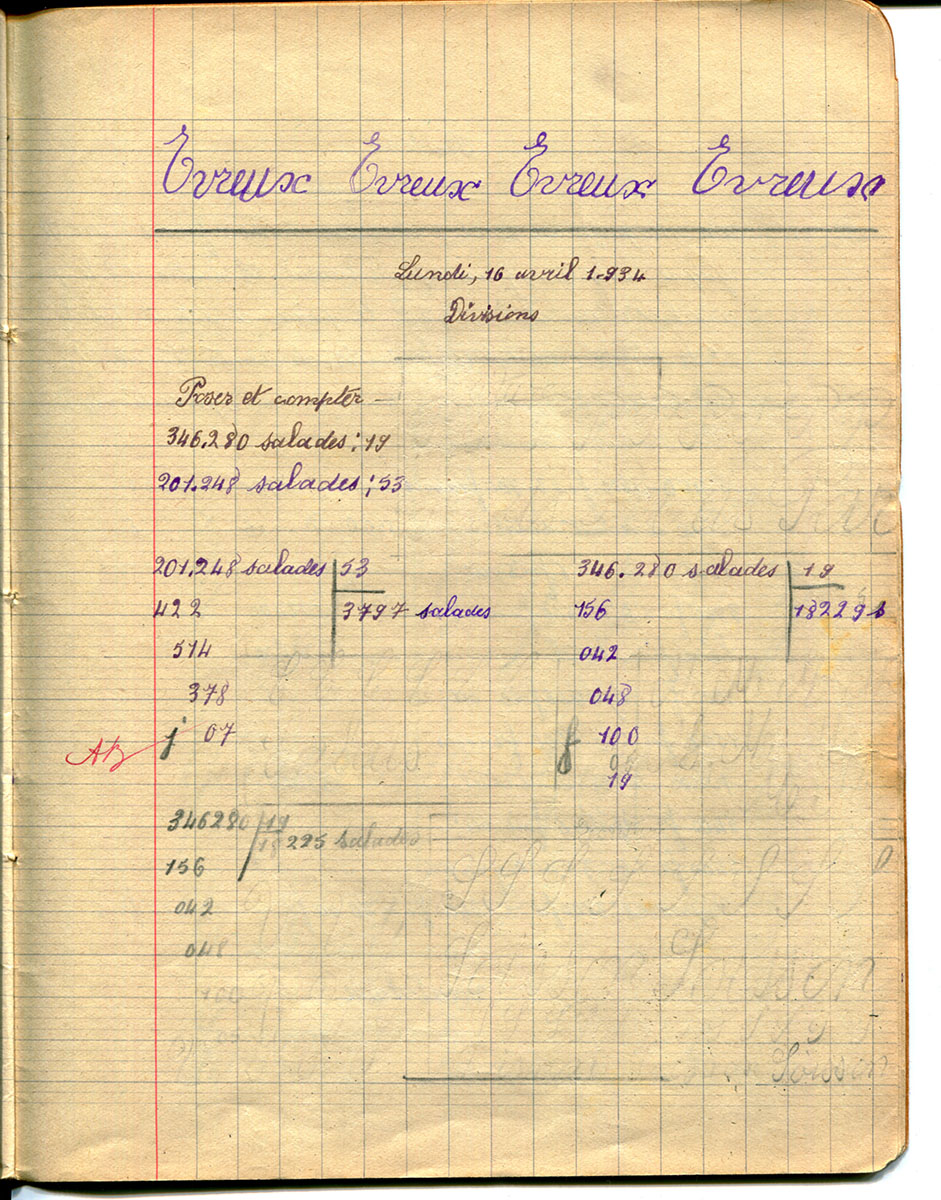 Evreux Evreux Evreux Evreux
Lundi, 16 avril 1.934
Divisions
Poser et compter
346.280 salades : 19
201.248 salades : 53
201.248 salades 53
422 3797 salades
514
378
j 07
AB
346.280 salades 19
156 18225 s
042
048
f 100
19
346280 19
18225 salades
156
042
048
100
05
Soisson
Soisson